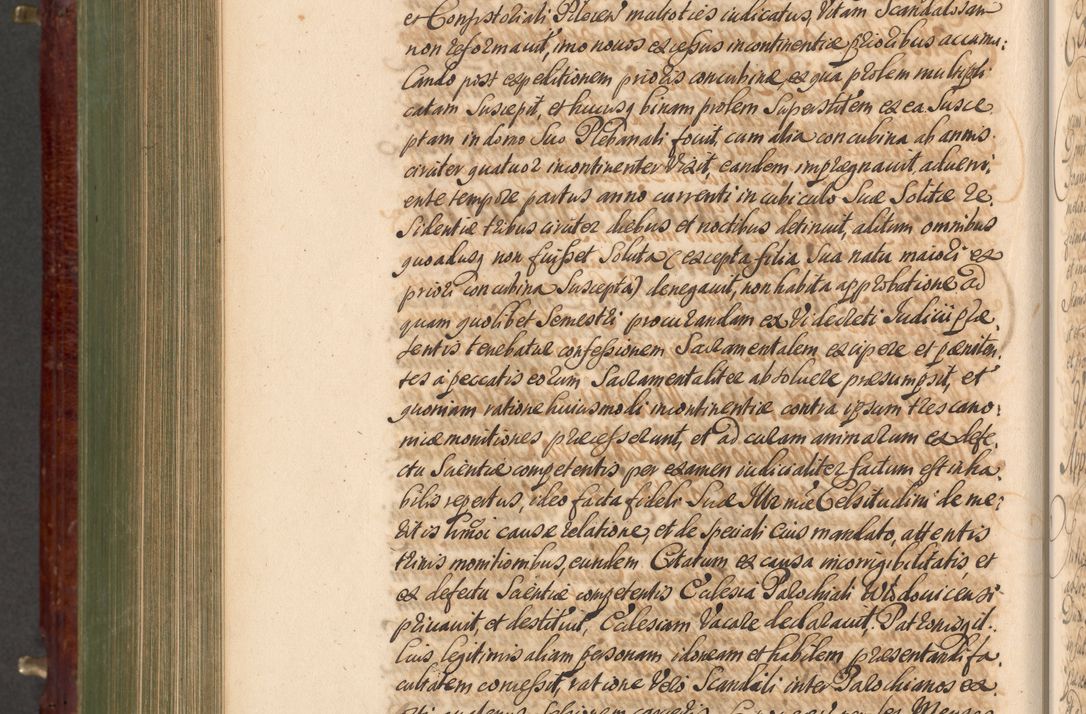 et Consistoriali Plocen multoties iudicatus, Vitam Scandalosam
non reformavit, imo novos excessus incontinentiæ prioribus accumu:
lando post expeditionem prioris concubinæ, ex qua prolem multipli:
catam Suscepit, et hucusq binam prolem Superstitem ex ea Susce
ptam in domo Suo Plebanali fovit, cum alia concubina ab annis
circiter quatuor incontinenter Vixit, eandem imprægnavit, adveni,
ente tempore partus anno currenti in cubiculo Suæ Solitæ re,
Sidentiæ tribus circiter diebus et noctibus detinuit, aditum omnibus
quoadusq non fuisset Soluta (excepta filia Sua natu maiori ex
priori concubina Suscepta) denegavit, non habita approbatione ad
quam quolibet Semestri procurandam ex Vi decreti Iudicii præ,
sentis tenebatur confessionem Sacramentalem excipere et pæniten,
tes a peccatis eorum Sacramentaliter absoluere præsumpsit, et
quoniam ratione huiusmodi incontinentiæ contra ipsum tres cano:
nicæ monitiones præcesserunt, et ad curam animarum ex defe,
ctu Scientiæ competentis per examen iudicialiter factum est inha
bilis repertus, ideo facta fideli Suæ Illrmæ Celsitudini de me:
ritis causæ relatione, et de speciali Eius mandato, attentis
trinis monitionibus, eundem Citatum ex causa incorrigibilitatis et
ex defectu Scientiæ competentis Ecclesia Parochiali Wodovicensi
privavit et destituit, Ecclesiam Vacare declaravit. Patronisq il.
lius, legitimis aliam personam idoneam et habilem præsentandi fa,
cultatem concessit, ratione Vero Scandali inter Parochianos ex